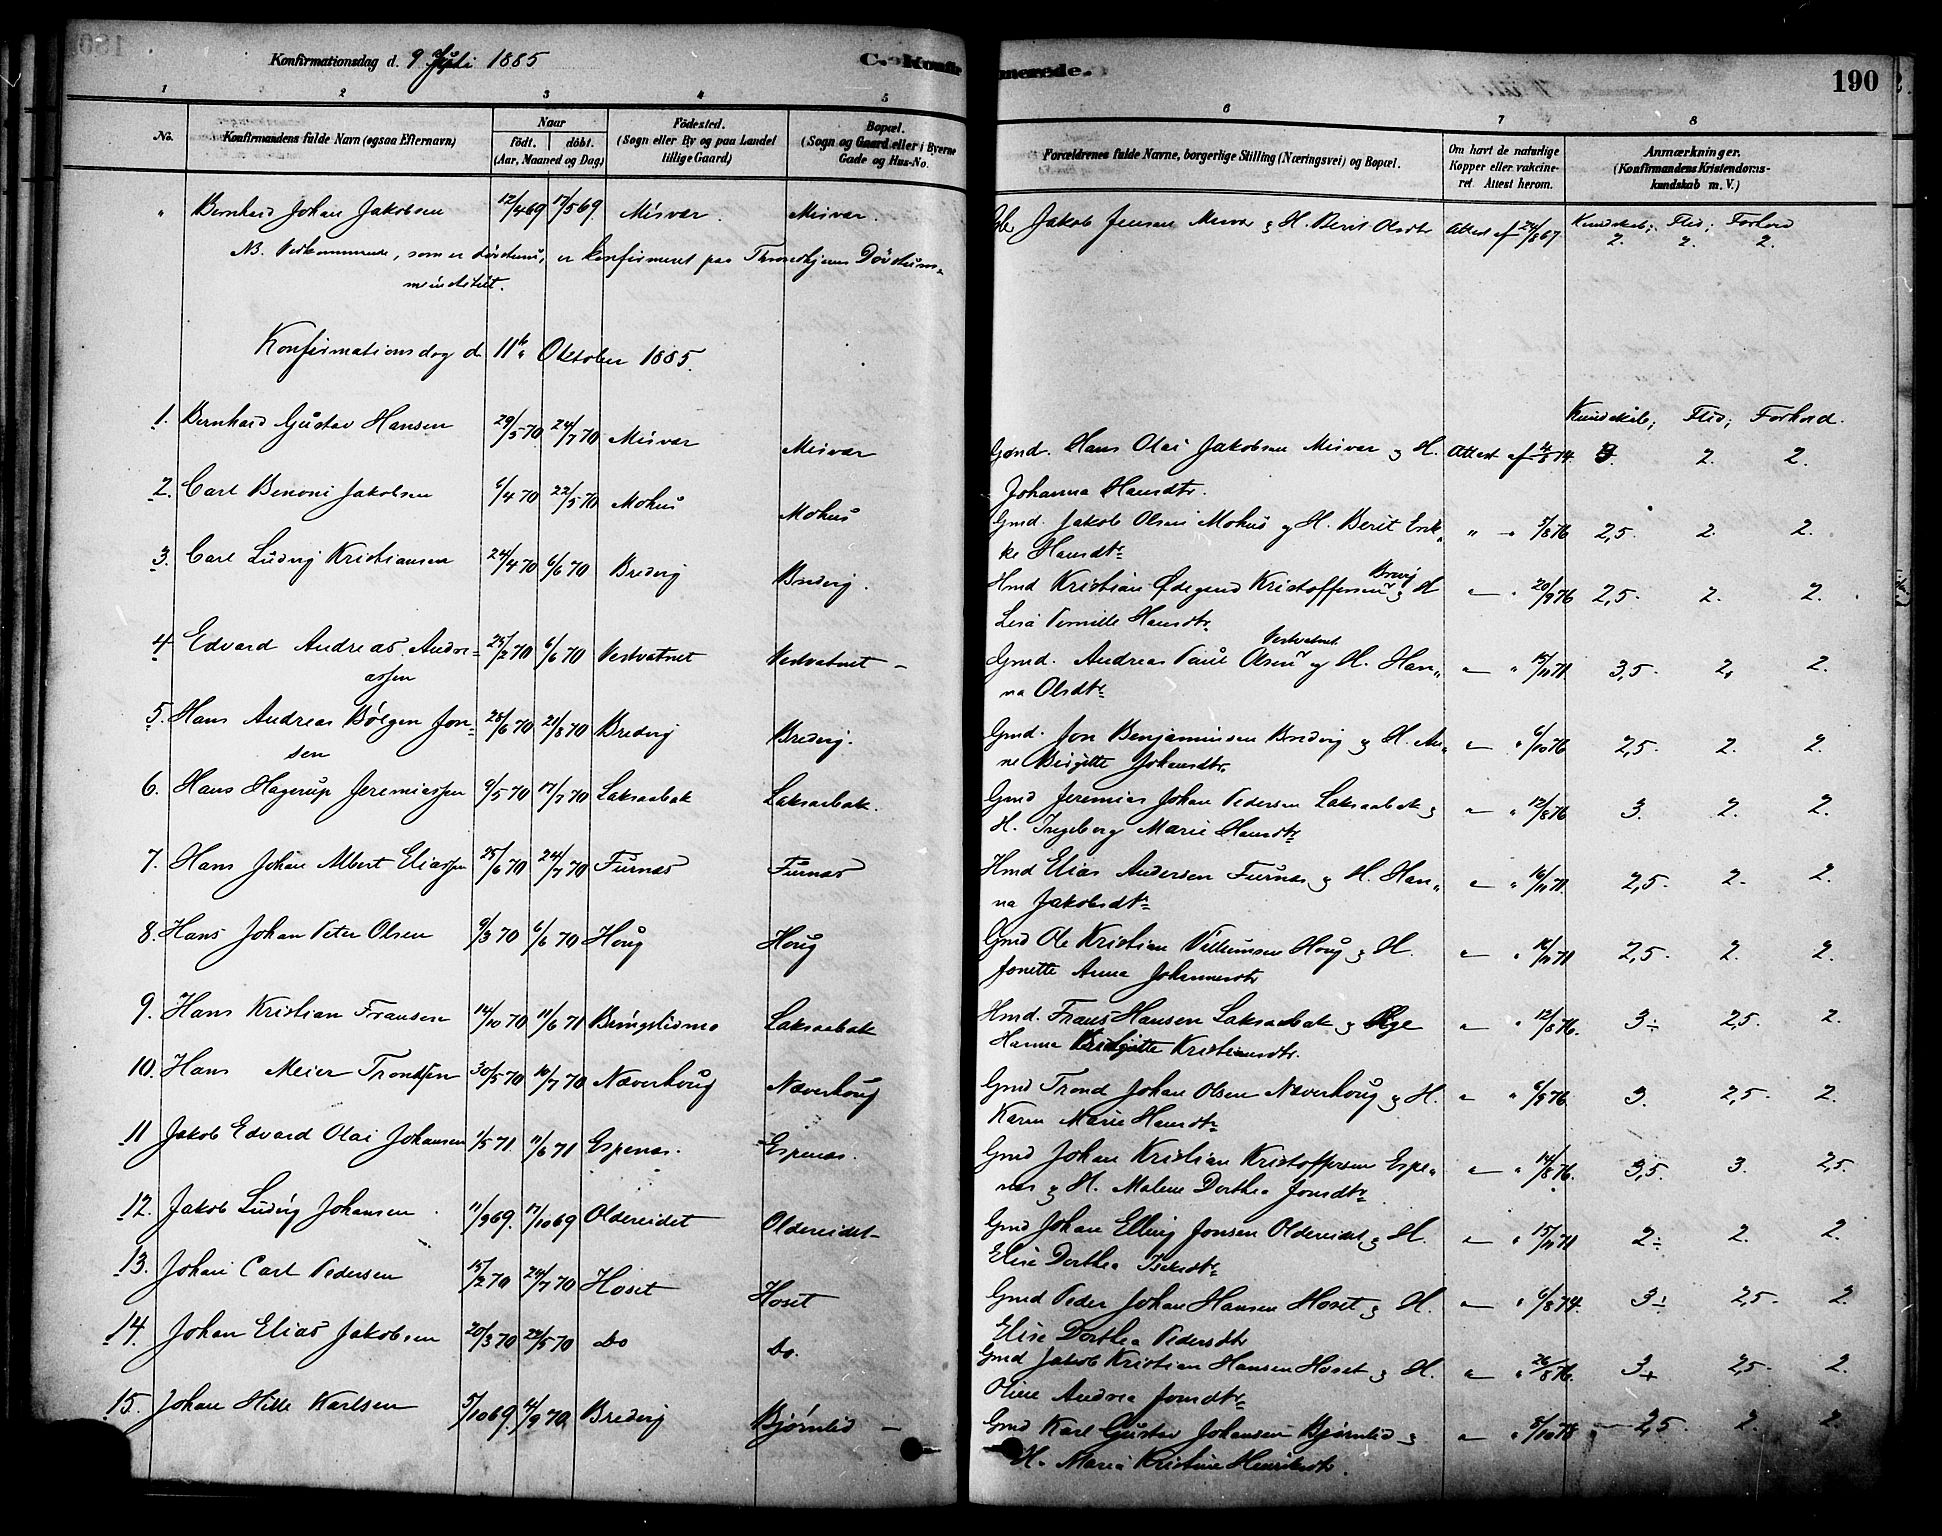 Konfirmationsdag d. 9 Juli 1885
C. Konfirmerede.
190
1 2 3 4 5 6 7 8
No. Konfirmandens fulde Navn (ogsaa Efternavn) Naar födt. döbt. (Aar, Maaned og Dag) Födested. (Sogn eller By og paa Landet tillige Gaard) Bopæl. (Sogn og Gaard eller i Byerne Gade og Hus-No. Forældrenes fulde Navne, borgerlige Stilling (Næringsvei) og Bopæl. Om havt de naturlige Kopper eller vakcineret Attest herom. Anmærkninger. (Konfirmandens Kristendomskundskab m. V.)
" Bernhard Johan Jakobsen 12/4 69 17/5 69 Misvær. Misvær. Jakob Jensen Misvær & H. Berit Olsdtr Attest af 24/8 67 Kundskab; 2. Flid; 2. Forhold 2.
NB. Vedkommende, som er døvstum, er konfirmeret paa Throndhjems Døvstum-
meinstitut.
Konfirmationsdag d. 11te Oktober 1885.
Kundskab; Flid; Forhold.
1. Bernhard Gustav Hansen 29/5 70 24/7 70 Misvær Misvær Gmd. Hans Olai Jakobsen Misvær & H. Attest af 74. 3. 2. 2.
Johanna Hansdtr.
2. Carl Benoni Jakobsen 6/4 70 22/5 70 Mohus Mohus Gmd. Jakob Olsen Mohus & H. Berit Erik- " 5/8 76 2,5. 2. 2.
ke Hansdtr
3. Carl Ludvig Kristiansen 24/4 70 6/6 70 Bredvig Bredvig. Hmd Kristian Ødegaard Kristoffersen Brevig & H " 20/9 76 2,5. 2. 2.
Lisa Pernille Hansdtr
4 Edvard Andreas Andre- 25/2 70 6/6 70 Vestvatnet Vestvatnet Gmd. Andreas Paul Olsen Vestvatnet & H. Han- " 15/11 71 3,5. 2. 2.
assen
na Olsdtr
5. Hans Andreas Børgen Jon- 28/6 70 21/8 70 Bredvig Bredvig. Gmd. Jon Benjaminsen Bredvig & H. An- " 6/10 76 2,5. 2. 2.
sen
ne Birgitte Johansdtr.
6. Hans Hagerup Jeremiassen 9/5 70 17/7 70 Laksaabak Laksaabak. Gmd Jeremias Johan Pedersen Laksaabak & " 12/8 76 3. 2. 2.
H. Ingeborg Marie Hansdtr
7. Hans Johan Albert Eliassen 25/6 70 24/7 70 Furnæs Furnæs Hmd Elias Andersen Furnæs & H. Han- " 16/11 71 2,5. 2. 2.
na Jakobsdtr
8. Hans Johan Peter Olsen 9/3 70 6/6 70 Houg Houg Gmd Ole Kristian Villumsen Houg & H. " 16/11 71 2,5. 2. 2.
Jonette Anna Johannesdtr
9. Hans Kristian Fransen 14/10 70 11/6 71 Bringslismo Laksaabak Hmd. Frans Hansen Laksaabak & Pige " 12/8 76. 3÷ 2,5. 2.
Hanna Birgitte Kristiansdtr.
10. Hans Meier Trondsen 30/5 70 10/7 70 Næverhoug Næverhoug Gmd Trond Johan Olsen Næverhoug & H. " 6/8 76 3. 2,5. 2.
Karen Marie Hansdtr
11 Jakob Edvard Olai Johansen 1/5 71 11/6 71 Espenæs. Espenæs. Gmd Johan Kristian Kristoffersen Espe- " 14/8 76. 3,5. 3. 2,5.
næs & H. Malene Dorthea Jonsdtr
12. Jakob Ludvig Johansen 11/9 69. 17/10 69 Oldereidet Oldereidet Gmd Johan Elling Jonsen Oldereidet & H. " 15/11 71 2÷ 2. 2.
Elise Dorthea Isaksdtr
13. Johan Carl Pedersen 15/2 70 24/7 70 Hoset Hoset Gmd Peder Johan Hansen Hoset & H. " 6/8 74. 3÷ 2,5. 2.
Elise Dorthea Pedersdtr
14. Johan Elias Jakobsen 20/3 70 22/5 70 Do Do. Gmd Jakob Kristian Hansen Hoset & H. " 26/8 76. 3+ 2,5. 2.
Oline Andrea Jonsdtr
15. Johan Hille Karlsen 5/10 69 4/9 70. Bredvig Bjørnlid Gmd Karl Gustav Johansen Bjørnlid & " 8/10 78 2,5. 2. 2.
H. Maria Kristine Henriksdtr.